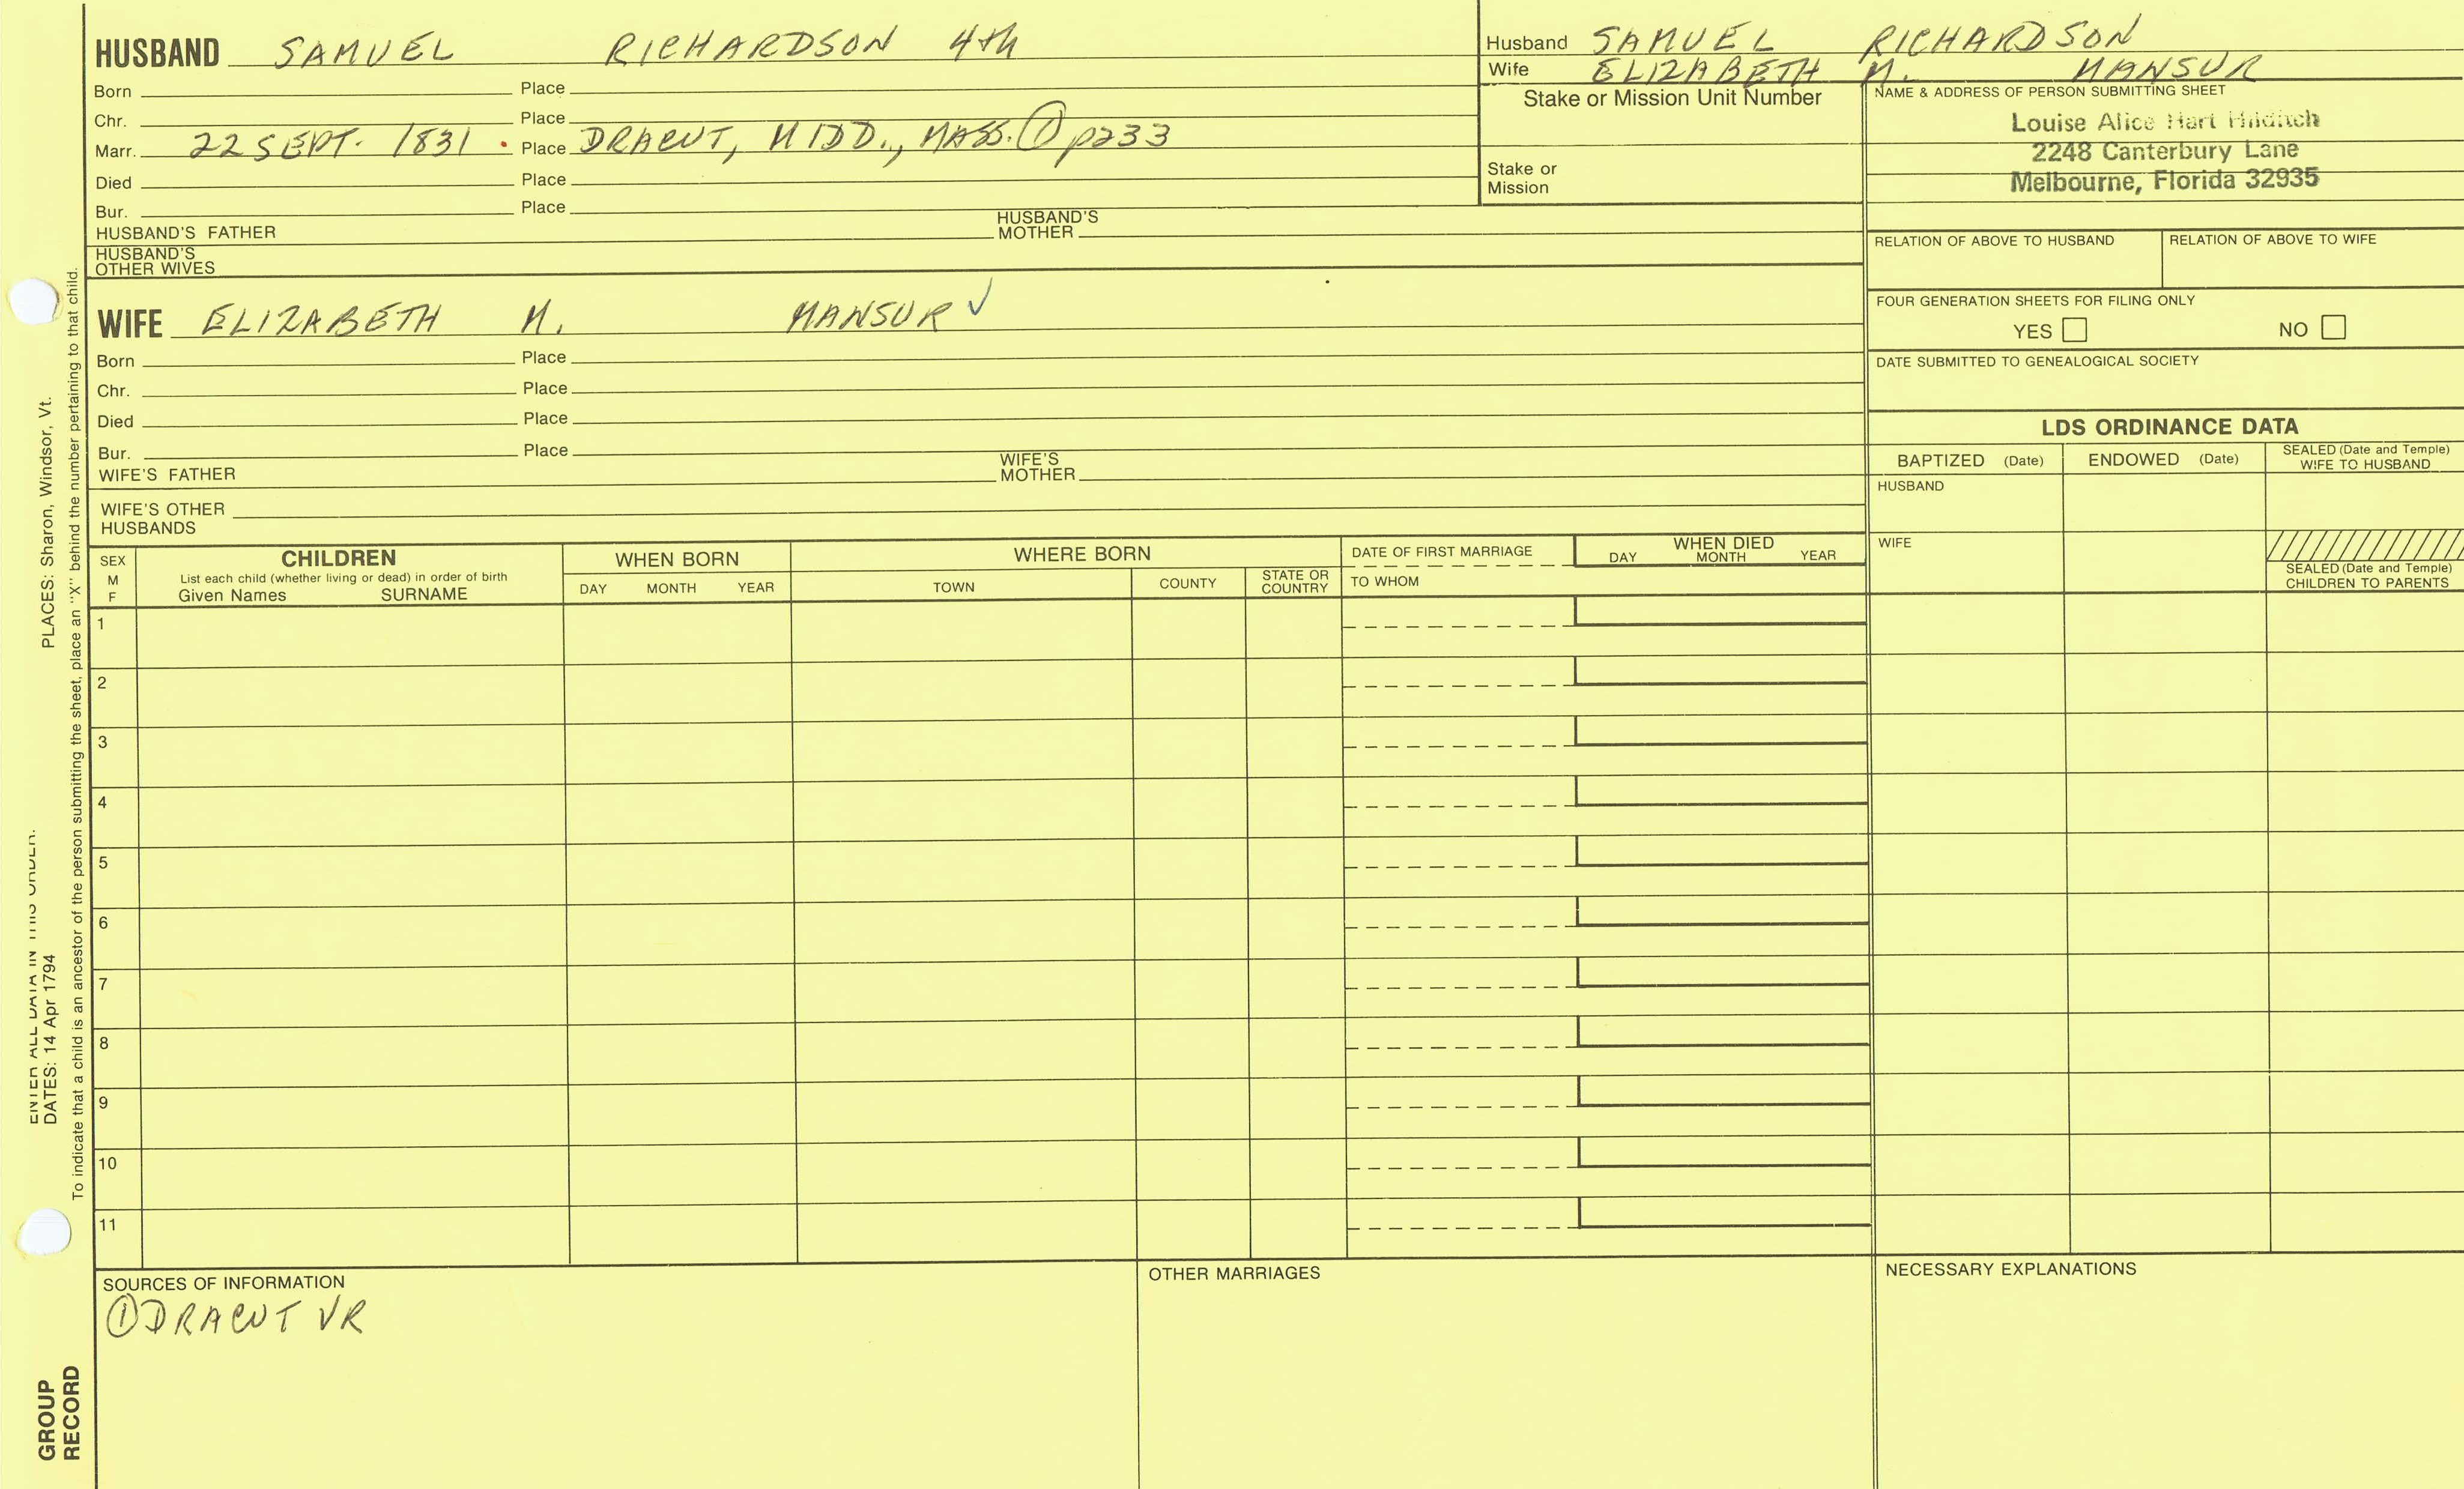 HUSBAND SAMUEL RICHARDSON 4th
Born Place
Chr. Place
Marr. 22 SEPT. 1831 Place DRACUT, MIDD., MASS. ① p233
Died Place
Bur. Place
HUSBAND'S FATHER HUSBAND'S MOTHER
HUSBAND'S OTHER WIVES
Husband SAMUEL RICHARDSON
Wife ELIZABETH M. MANSUR
Stake or Mission Unit Number
Stake or Mission
NAME & ADDRESS OF PERSON SUBMITTING SHEET
Louise Alice Hart Hilditch
2248 Canterbury Lane
Melbourne, Florida 32935
RELATION OF ABOVE TO HUSBAND RELATION OF ABOVE TO WIFE
FOUR GENERATION SHEETS FOR FILING ONLY
YES NO
DATE SUBMITTED TO GENEALOGICAL SOCIETY
WIFE ELIZABETH M. MANSUR ✓
Born Place
Chr. Place
Died Place
Bur. Place
WIFE'S FATHER WIFE'S MOTHER
WIFE'S OTHER HUSBANDS
LDS ORDINANCE DATA
BAPTIZED (Date) ENDOWED (Date) SEALED (Date and Temple) WIFE TO HUSBAND
HUSBAND
WIFE
SEALED (Date and Temple) CHILDREN TO PARENTS
SEX M F
CHILDREN
List each child (whether living or dead) in order of birth
Given Names SURNAME
WHEN BORN
DAY MONTH YEAR
WHERE BORN
TOWN COUNTY STATE OR COUNTRY
DATE OF FIRST MARRIAGE
TO WHOM
WHEN DIED
DAY MONTH YEAR
1
2
3
4
5
6
7
8
9
10
11
SOURCES OF INFORMATION
① DRACUT VR
OTHER MARRIAGES
NECESSARY EXPLANATIONS
ENTER ALL DATA IN THIS ORDER.
DATES: 14 Apr 1794 PLACES: Sharon, Windsor, Vt.
To indicate that a child is an ancestor of the person submitting the sheet, place an "X" behind the number pertaining to that child.
GROUP
RECORD